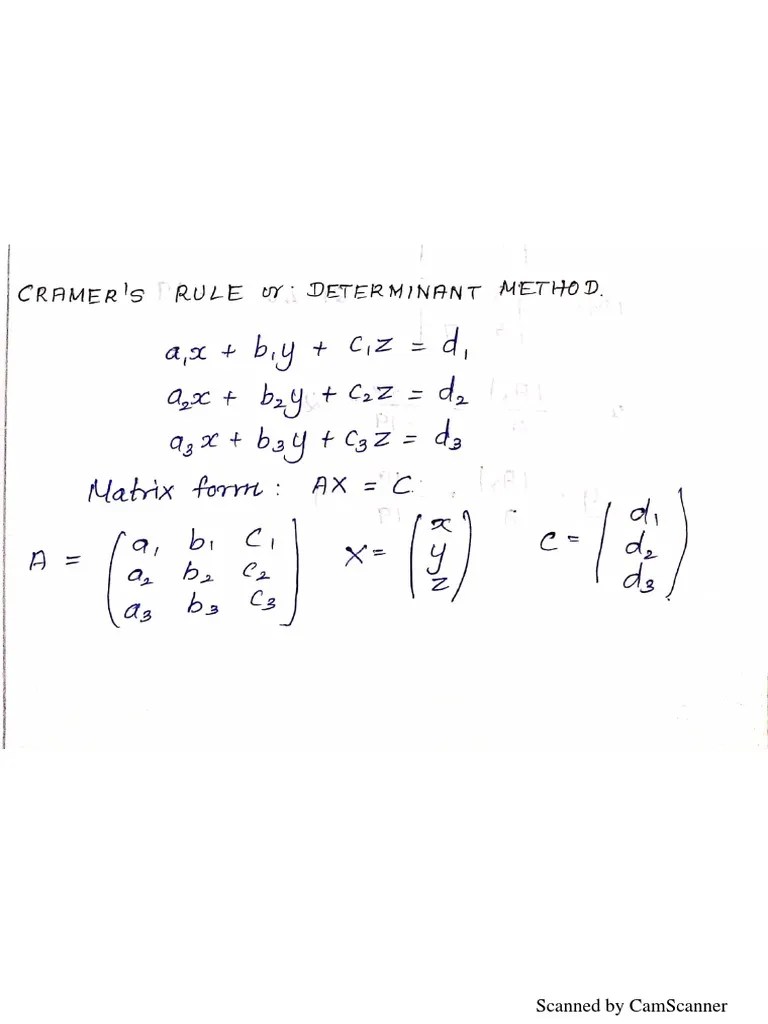 CRAMER'S RULE or: DETERMINANT METHOD.
a₁x + b₁y + c₁z = d₁
a₂x + b₂y + c₂z = d₂
a₃x + b₃y + c₃z = d₃
Matrix form: AX = C.
A = (a₁ b₁ c₁ X = (x C = (d₁
a₂ b₂ c₂ y d₂
a₃ b₃ c₃) z) d₃)
Scanned by CamScanner